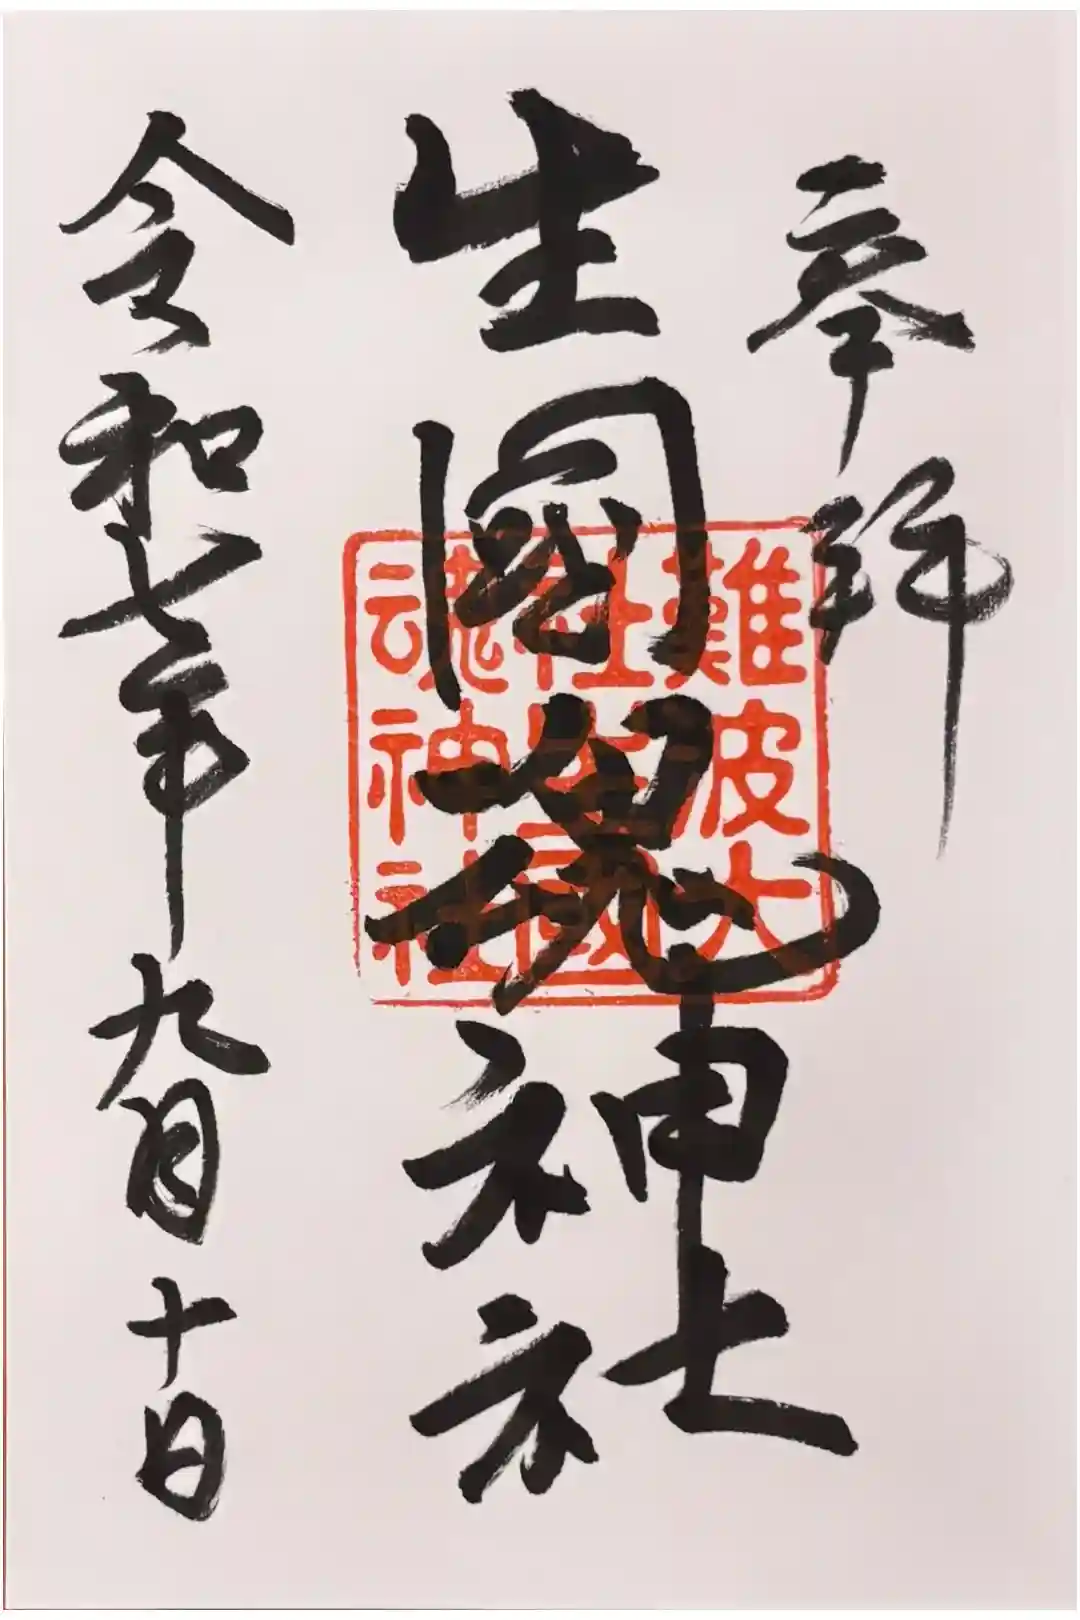 奉拝
生國魂神社
難波大
社生國
魂神社
令和七年九月十日